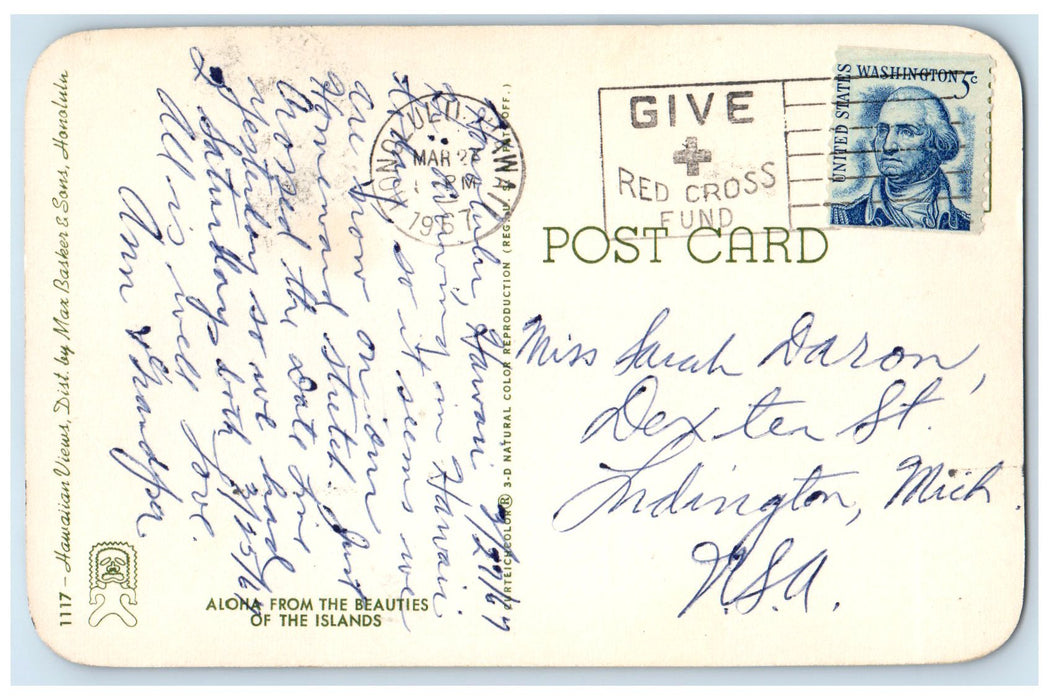 1117 - Hawaiian Views, Dist. by Max Basker & Sons, Honolulu
ALOHA FROM THE BEAUTIES
OF THE ISLANDS
CURTEICHCOLOR® 3-D NATURAL COLOR REPRODUCTION (REG. U. S. PAT. OFF.)
Honolulu, Hawaii. 3/27/67
Morning in Hawaii
so it seems we
are now on our
Homeward stretch. Just
Crossed the Date line
yesterday so we had
2 Saturdays both 3/25/67
All is well Love.
Ann & Grandpa.
HONOLULU, HAWAII
MAR 27
PM
1967
GIVE
RED CROSS
FUND
UNITED STATES
WASHINGTON 5c
POST CARD
Miss Sarah Daron,
Dexter St.
Ludington, Mich.
U.S.A.